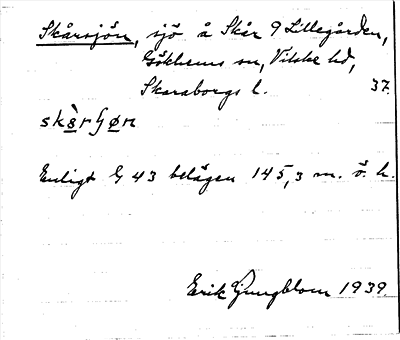 Skårsjön, sjö å Skår 9 Lillegården,
Gökhems sn, Vilske hd,
Skaraborgs l. 37.
Enligt G 43 belägen 145,3 m. ö. h.
Erik Ljungblom 1939